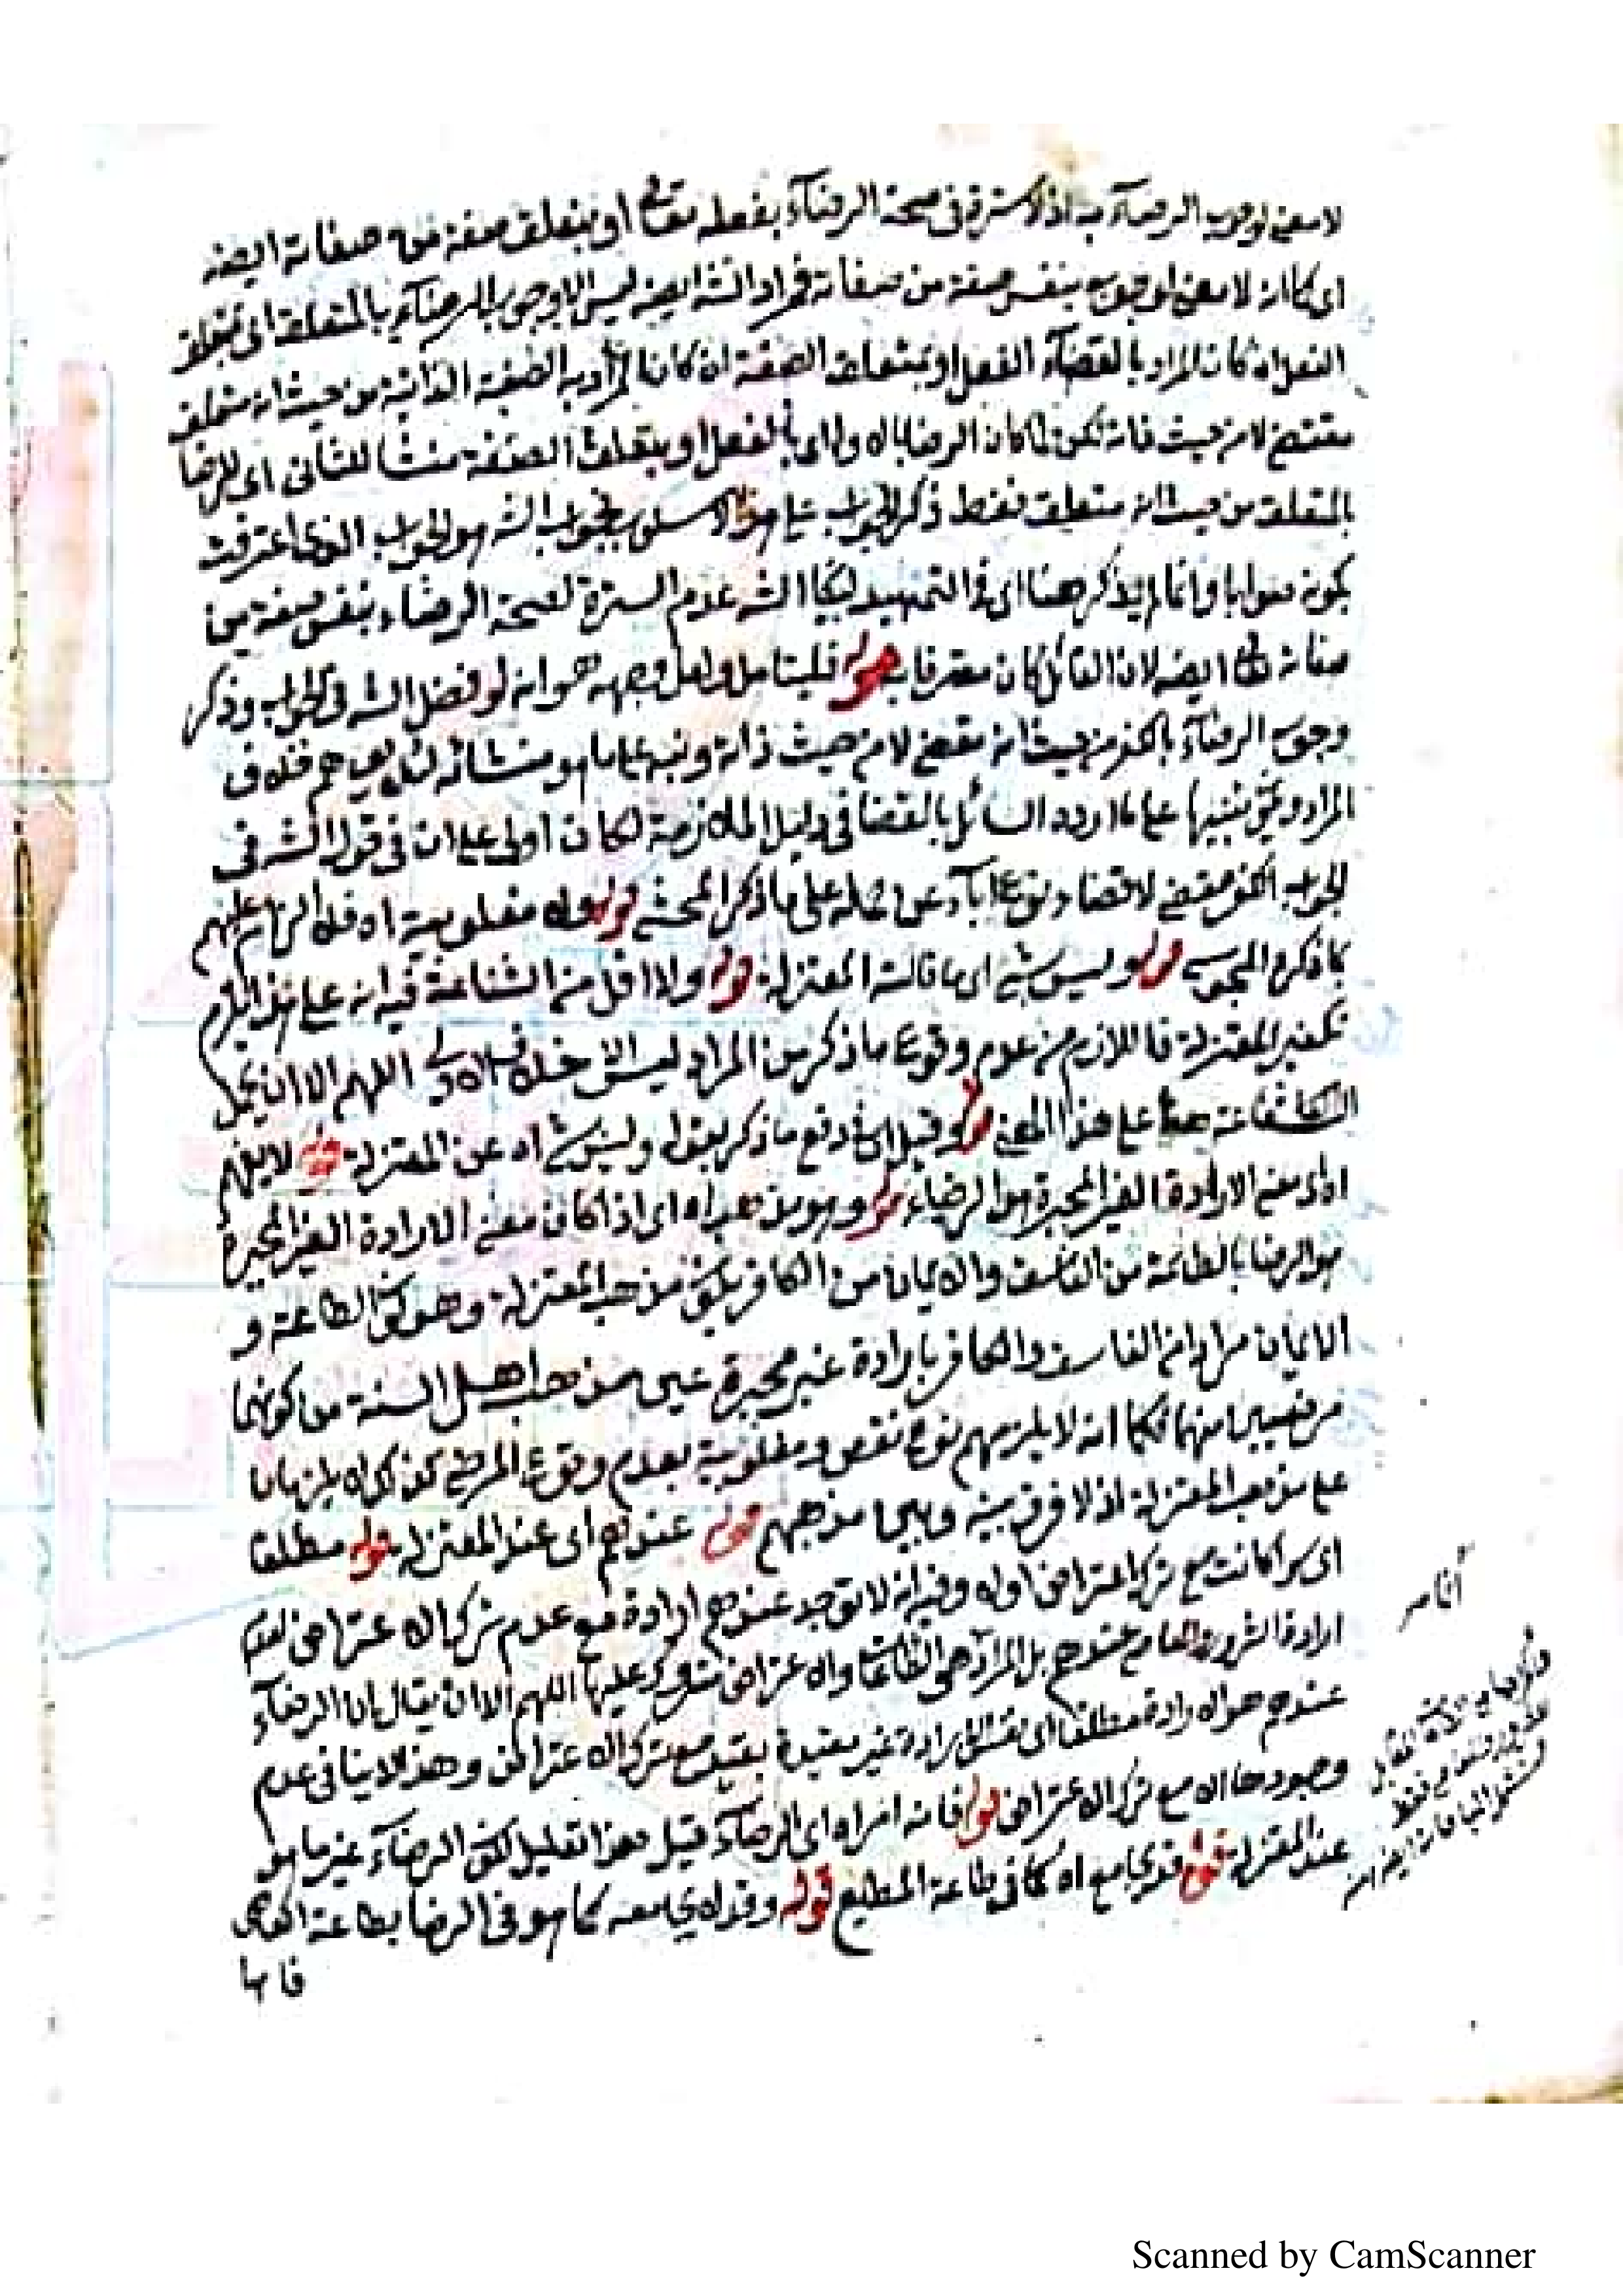 لا معنى لوجوب الرضاء به اذ لا سترة فى صحة الرضاء بفعله تعالى او بتعلق صفة من صفاته ايضه
اى كما انه لا معنى لوجوبه بنفس صفة من صفاته فمراد الشه ايضه ليس الا وجوب الرضاء بالمتعلق اى بمتعلق
الفعل ان كان المراد بالقضاء الفعل او بمتعلق الصفة ان كان المراد به الصفة الذاتية من حيث انه متعلق
مقتضى لا من حيث ذاته لكن لما كان الرضا بالاول اى بالفعل او بتعلق الصفة منشأ للثانى اى للرضا
بالمتعلق من حيث انه متعلق فقط ذكر الجواب على هذا الاسلوب فجواب الشه هو الجواب الذى اعترفت
بكونه صوابا وانما لم يذكر هنا اى فى التمهيد الشه عدم السترة لصحة الرضاء بنفس صفة من
صفاته تعا ايضه لان القائل كان معترفا به قوله فليتامل ولعل وجهه هو انه لو فصل الشه فى الجواب وذكر
وجوب الرضاء بالكفر من حيث انه مقضى لا من حيث ذاته ونبه على ما هو منشائه لئلا يتوهم خلاف
المراد تنبيها على ما اردده السائل بالقضا فى دليل الملازمة لكان اولى على ان فى قول الشه فى
الجواب الكفر مقضى لا قضاء نوع اباء عن حمله على ما ذكر المحشى قوله ولا مغلوبية اه فلا الزام عليهم
كما فى المجوسى قوله وليس بشئ اى ما قالته المعتزلة قوله ولا اقل من الشناعة فيه انه على هذا يلزم
تكفير المعتزلة فاللازم من عدم وقوع ما ذكر من المراد ليس الا خلاف الاولى اللهم الا ان يحمل
الشناعة على هذا المعنى قوله وقيل اى فى دفع ما ذكر بقوله وليس بشئ اه عن المعتزلة قوله لا يلزم
اذ معنى الارادة الغير المجبرة هو الرضاء قوله وهو مذهب اه اى اذا كان معنى الارادة الغير المجبرة
هو الرضا بالطاعة من الفاسق والايمان من الكافر يكون مذهب المعتزلة وهو كون الطاعة و
الايمان مرادا من الفاسق والكافر بارادة غير مجبرة عين مذهب اهل السنة من كونهما
مرضيين منهما فكما انه لا يلزمهم نوع نقص ومغلوبية بعدم وقوع المرضى كذلك لا يلزمان
على مذهب المعتزلة اذ لا فرق بينه وبين مذهبهم قوله عندهم اى عند المعتزلة قوله مطلقا
اى سواء كانت مع ترك اعتراض اولا وفيه انه لا توجد عندهم ارادة مع عدم ترك الاعتراض لعدم
ارادة الشرور والمعاصى عندهم بل المراد هو الطاعة والاعتراض عليها اللهم الا ان يقال ان الرضاء
عندهم هو الارادة مطلقا اى نفس الارادة غير مقيدة بقيد مع ترك الاعتراض وهذا لا ينافى عدم
وجودها الا مع ترك الاعتراض قوله فانه امر اه اى الرضاء قيل هذا تعليل لكون الرضاء غير ما هو
عند المعتزلة قوله قد يجامع اه كما فى طاعة المطيع قوله وقد لا يجامعه كما هو فى الرضا بطاعة العاصى
فانها